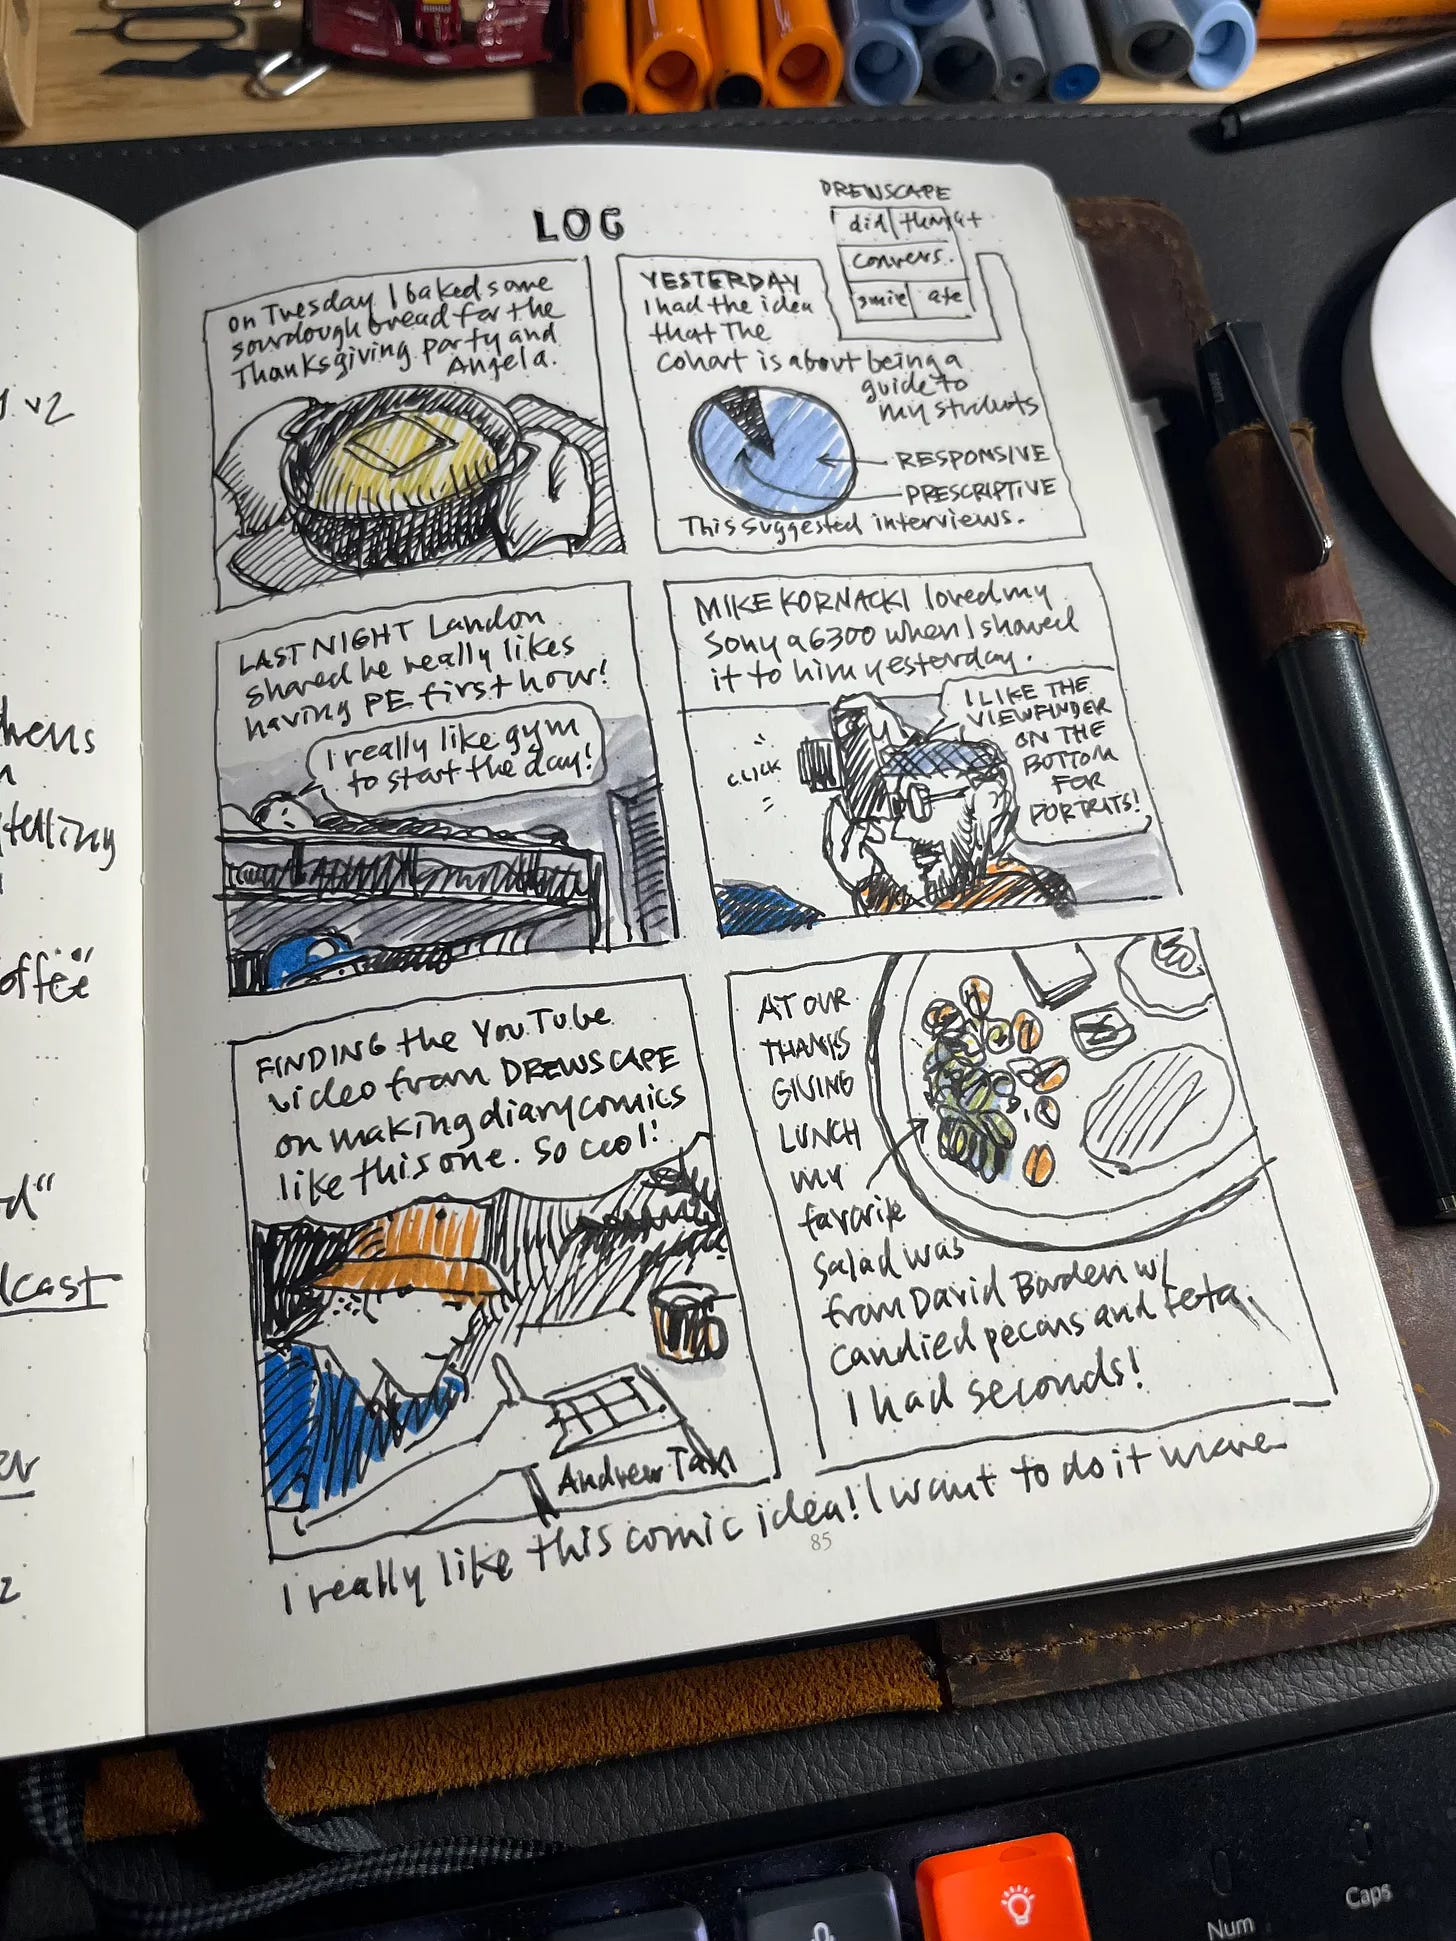 v2
hens
telling
offee"
d"
dcast
er
2
LOG
DREWSCAPE
did thought
convers.
smile ate
on Tuesday I baked some
sourdough bread for the
Thanksgiving party and
Angela.
YESTERDAY
I had the idea
that The
Cohort is about being a
guide to
my students
RESPONSIVE
PRESCRIPTIVE
This suggested interviews.
LAST NIGHT Landon
shared he really likes
having PE first hour!
I really like gym
to start the day!
MIKE KORNACKI loved my
Sony a6300 when I showed
it to him yesterday.
CLICK
I LIKE THE
VIEWFINDER
ON THE
BOTTOM
FOR
PORTRAITS!
FINDING the YouTube
video from DREWSCAPE
on making diary comics
like this one. So cool!
Andrew Tan
AT OUR
THANKS
GIVING
LUNCH
my
favorite
salad was
from David Barden w/
candied pecans and feta.
I had seconds!
I really like this comic idea! I want to do it more
85
Num
Caps